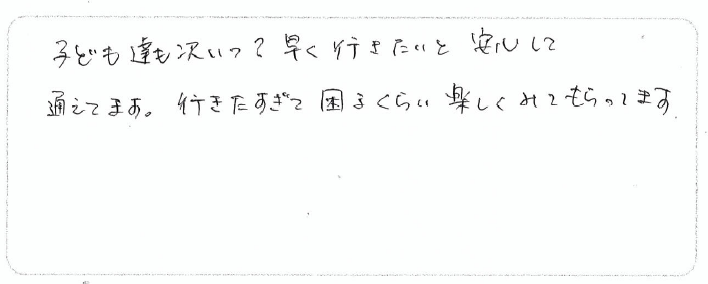 子ども達も次いつ？早く行きたいと安心して
通えてます。行きたすぎて困るくらい楽しくみてもらってます